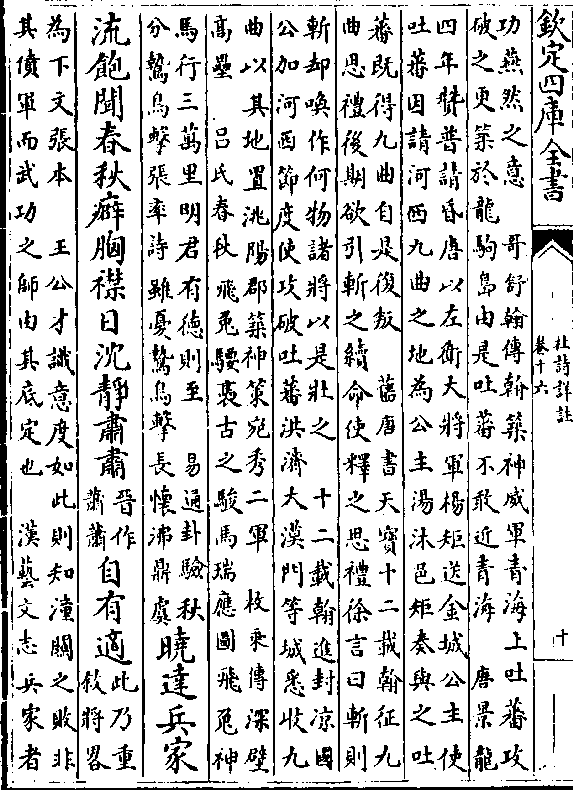 欽定四庫全書
杜詩詳註
卷十六
十
功燕然之意 哥舒翰傳翰築神威軍青海上吐蕃攻
破之更築於龍駒島由是吐蕃不敢近青海 唐景龍
四年贊普請昏唐以左衛大將軍楊矩送金城公主使
吐蕃因請河西九曲之地為公主湯沐邑矩奏與之吐
蕃既得九曲自是復叛 舊唐書天寶十二載翰征九
曲思禮後期欲引斬之續命使釋之思禮徐言曰斬則
斬却喚作何物諸將以是壯之 十二載翰進封凉國
公加河西節度使攻破吐蕃洪濟大漠門等城悉收九
曲以其地置洮陽郡築神策宛秀二軍 枚乘傳深壁
高壘 吕氏春秋飛兎騕褭古之駿馬瑞應圖飛兎神
馬行三萬里明君有德則至 易通卦驗秋
分鷙鳥擊張率詩雖憂鷙鳥擊長懷沸鼎虞
曉達兵家
流飽聞春秋癖胸襟日沈靜肅肅
晉作
蕭蕭
自有適
此乃重
敘將畧
為下文張本 王公才識意度如此則知潼關之敗非
其僨軍而武功之師由其底定也 漢藝文志兵家者